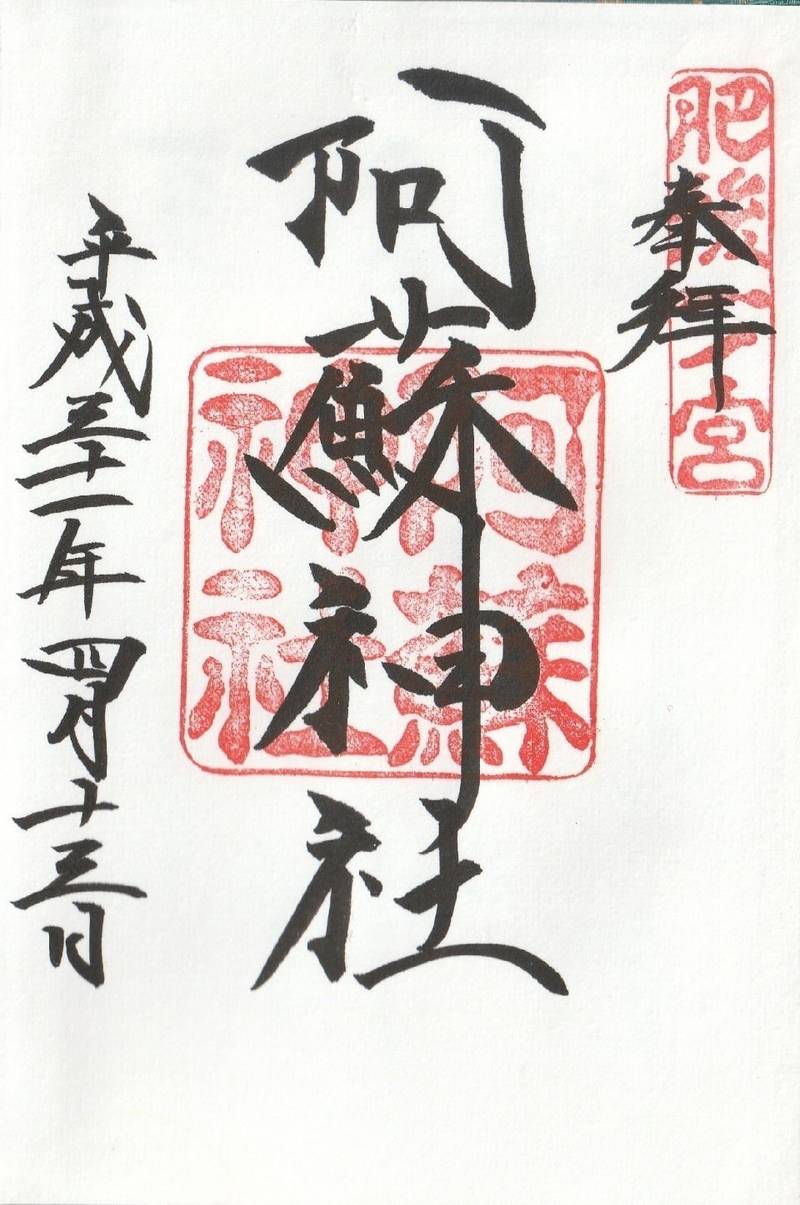 肥後一宮
奉拝
阿蘇神社
阿蘇神社
平成三十一年四月十三日